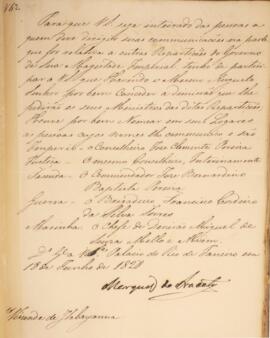 162.
Para que V. S. seja inteirado das pessoas a
quem deve dirigir suas communicações na parte
que for relativa a outras Repartições do Governo
de Sua Magestade Imperial, tenho de partici-
par a V. S. que Havendo o Mesmo Augusto
Senhor por bem Conceder a demissão que Lhe
pedirão os seus Ministros das ditas Repartições,
Houve por bem Nomear em seus Logares
as pessoas cujos nomes lhe communico e são
Imperio - o Conselheiro José Clemente Pereira
Justiça - O mesmo Conselheiro, Interinamente
Fazenda - O Commendador José Bernardino
Baptista Pereira
Guerra - O Brigadeiro Francisco Cordeiro
da Silva Torres
Marinha - O Chefe de Divisão Miguel de
Souza Mello e Alvim.
Ds. Ge. a V. S. Palacio do Rio de Janeiro em
18 de Junho de 1828
Marquez do Aracaty
Visconde de Itabayanna